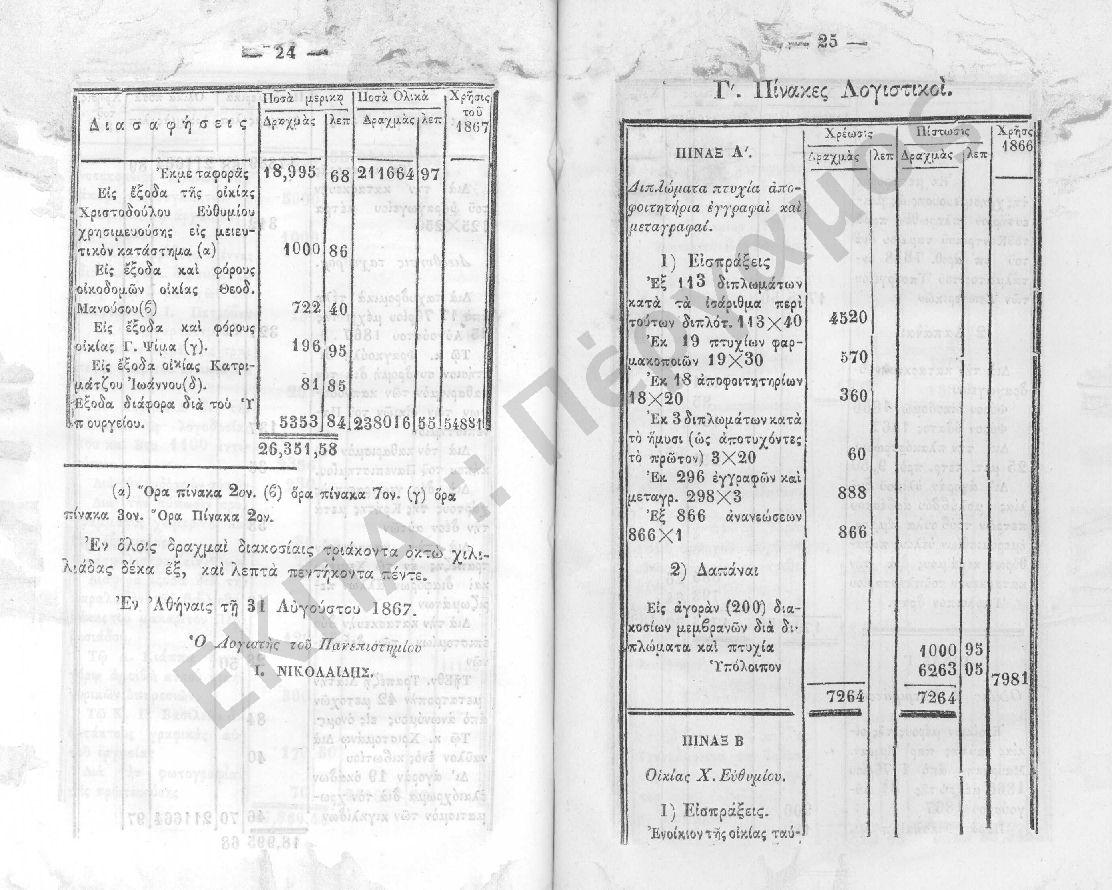 — 24 —
Διασαφήσεις | Ποσὰ μερικὰ Δραχμὰς λεπ | Ποσὰ Ολικὰ Δραχμὰς λεπ | Χρῆσις τοῦ 1867
Ἐκμεταφορᾶς 18,995 68 211664 97
Εἰς ἔξοδα τῆς οἰκίας
Χριστοδούλου Εὐθυμίου
χρησιμευούσης εἰς μειευ-
τικὸν κατάστημα (α) 1000 86
Εἰς ἔξοδα καὶ φόρους
οἰκοδομῶν οἰκίας Θεοδ.
Μανούσου(β) 722 40
Εἰς ἔξοδα καὶ φόρους
οἰκίας Γ. Ψίμα (γ). 196 95
Εἰς ἔξοδα οἰκίας Κατρι-
μάτζου Ἰωάννου(δ). 81 85
Ἔξοδα διάφορα διὰ τοῦ Ὑ
πουργείου. 5353 84 238016 55 54881
26,351,58
(α) Ὅρα πίνακα 2ον. (β) ὅρα πίνακα 7ον. (γ) ὅρα
πίνακα 3ον. Ὅρα Πίνακα 2ον.
Ἐν ὅλοις δραχμαὶ διακοσίαις τριάκοντα ὀκτὼ χιλι-
λιάδας δέκα ἓξ, καὶ λεπτὰ πεντήκοντα πέντε.
Ἐν Ἀθήναις τῇ 31 Αὐγούστου 1867.
Ὁ Λογιστὴς τοῦ Πανεπιστημίου
Ι. ΝΙΚΟΛΑΙΔΗΣ.
— 25 —
Γ'. Πίνακες Λογιστικοί.
ΠΙΝΑΞ Α'. | Χρέωσις Δραχμὰς λεπ | Πίστωσις Δραχμὰς λεπ | Χρῆσ 1866
Διπλώματα πτυχία ἀπο-
φοιτητήρια ἐγγραφαὶ καὶ
μεταγραφαί.
1) Εἰσπράξεις
Ἐξ 113 διπλωμάτων
κατὰ τὰ ἰσάριθμα περὶ
τούτων διπλότ. 113×40 4520
Ἐκ 19 πτυχίων φαρ-
μακοποιῶν 19×30 570
Ἐκ 18 ἀποφοιτητηρίων
18×20 360
Ἐκ 3 διπλωμάτων κατὰ
τὸ ἥμυσι (ὡς ἀποτυχόντες
τὸ πρῶτον) 3×20 60
Ἐκ 296 ἐγγραφῶν καὶ
μεταγρ. 298×3 888
Ἐξ 866 ἀνανεώσεων
866×1 866
2) Δαπάναι
Εἰς ἀγορὰν (200) δια-
κοσίων μεμβρανῶν διὰ δι-
πλώματα καὶ πτυχία 1000 95
Ὑπόλοιπον 6263 05 7981
7264 7264
ΠΙΝΑΞ Β
Οἰκίας Χ. Εὐθυμίου.
1) Εἰσπράξεις.
Ἐνοίκιον τῆς οἰκίας ταύ-
ΕΚΠΑ :: Πέργαμος